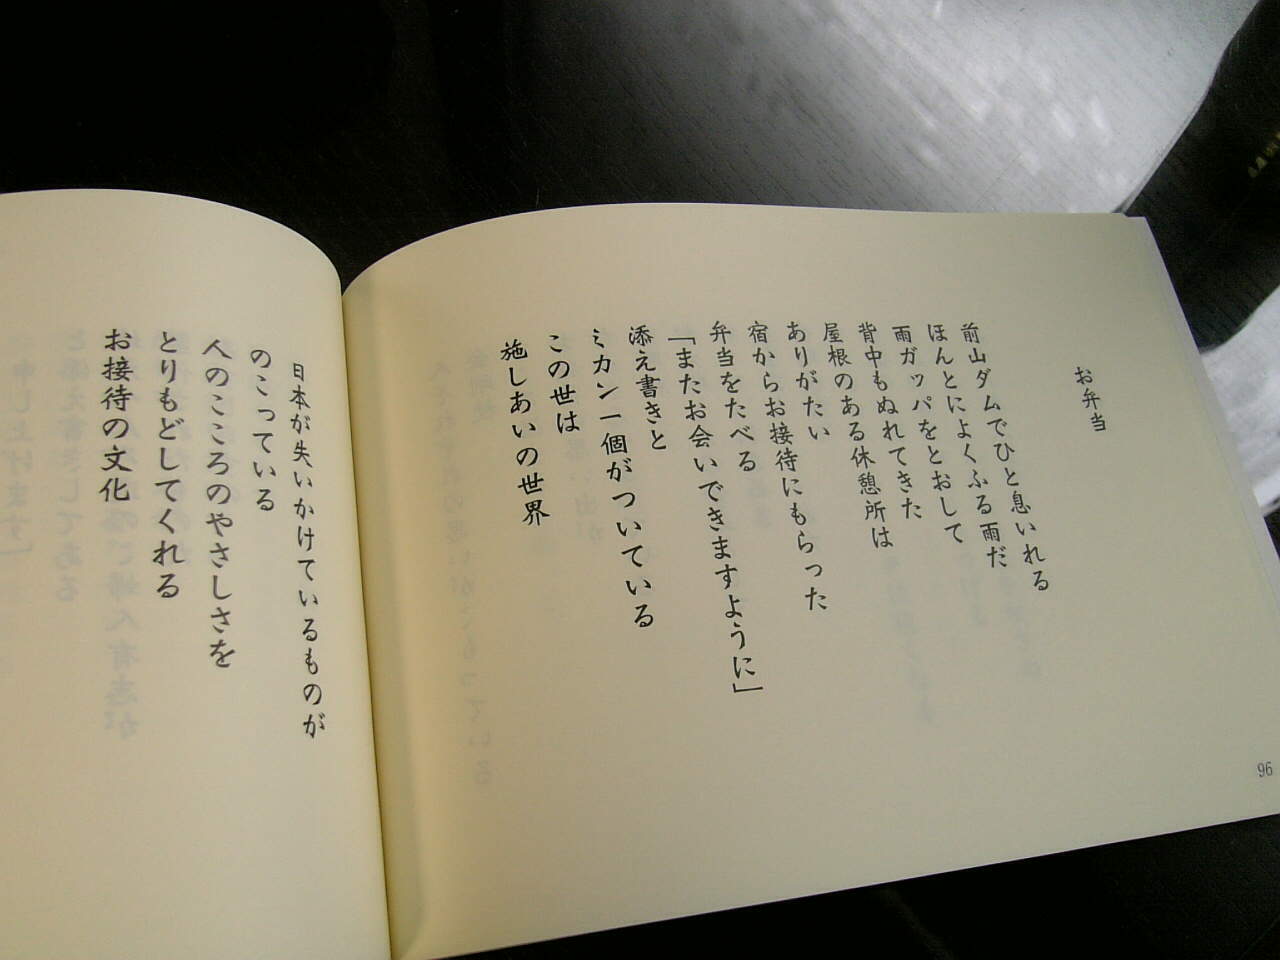 お弁当
前山ダムでひと息いれる
ほんとによくふる雨だ
雨ガッパをとおして
背中もぬれてきた
屋根のある休憩所は
ありがたい
宿からお接待にもらった
弁当をたべる
「またお会いできますように」
添え書きと
ミカン一個がついている
この世は
施しあいの世界
96
日本が失いかけているものが
のこっている
人のこころのやさしさを
とりもどしてくれる
お接待の文化